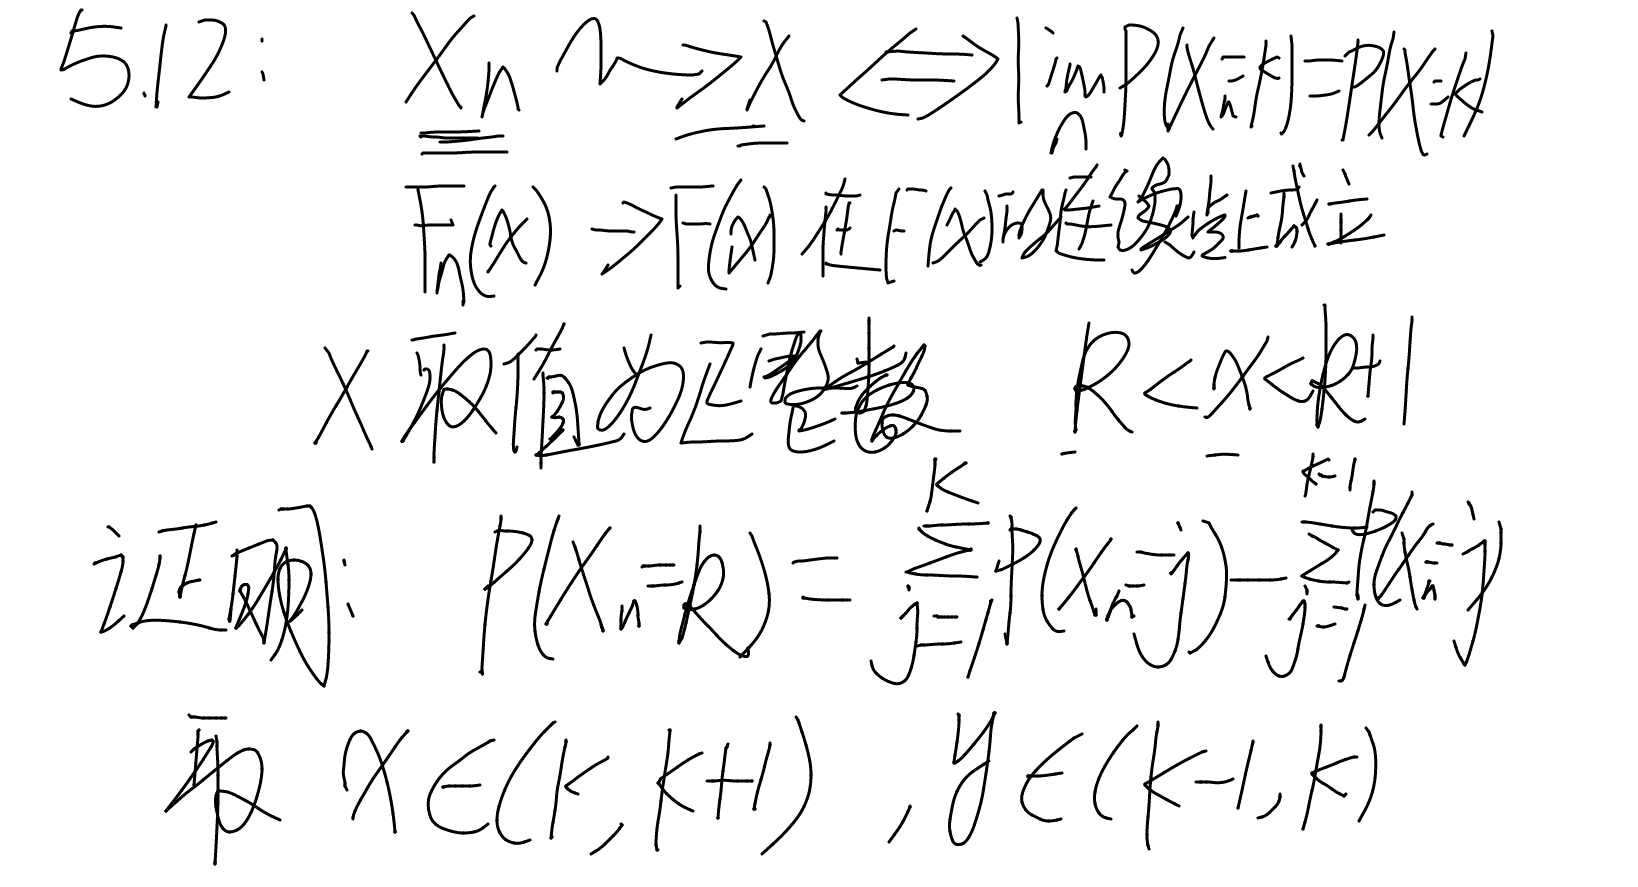 5.12: Xn ⇝ X ⇔ lim_n P(Xn=k)=P(X=k)
Fn(x) → F(x) 在F(x)的连续点上成立
X 取值为正整数 k<x<k+1
证明: P(Xn=k) = ∑_{j=1}^{k} P(Xn=j) - ∑_{j=1}^{k-1} P(Xn=j)
取 x∈(k,k+1) , y∈(k-1,k)